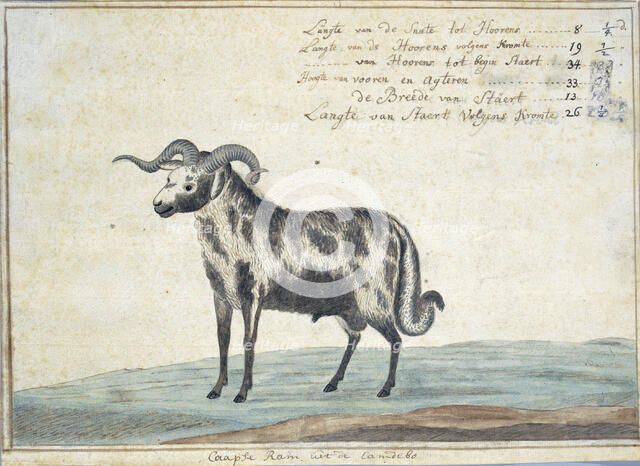 Langte van de Snute tot Hoorens 8 1/4 d.
Langte van de Hoorens volgens Kromte 19 1/2
van Hoorens tot begin Staert 34
Hoogte van vooren en agteren 33
de Breede van Staert 13
Langte van Staert Volgens Kromte 26 1/2
Caapse Ram uit de Camdebo